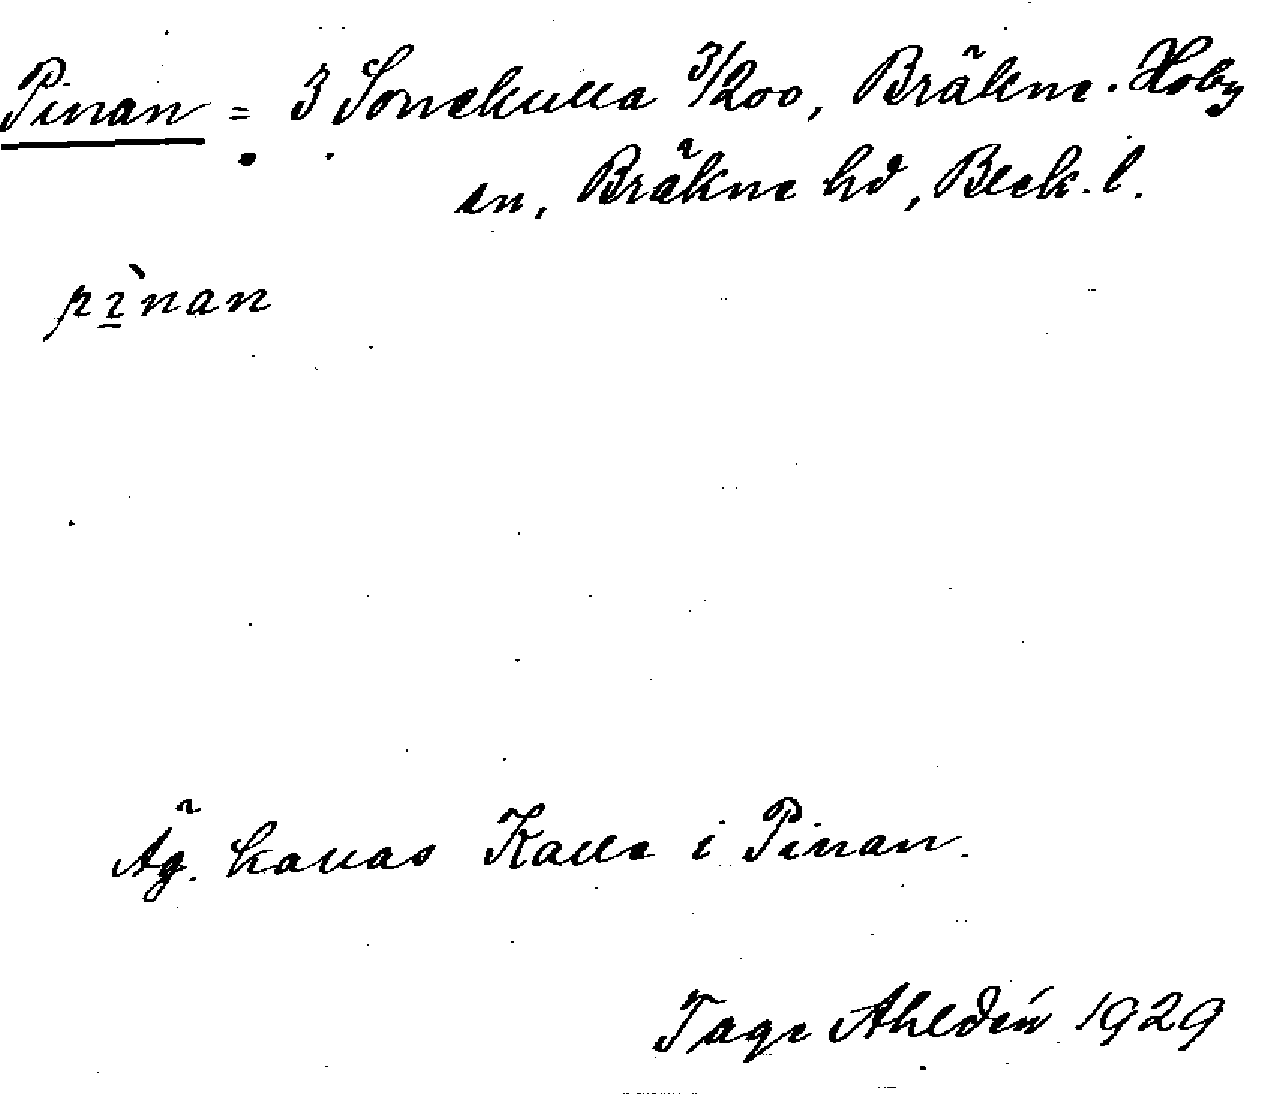 Pinan = 3 Sonekulla 3/200, Bräkne-Hoby
sn, Bräkne hd, Blek. l.
pı̱̀nan
Äg. kallas Kalle i Pinan.
Tage Ahldén 1929